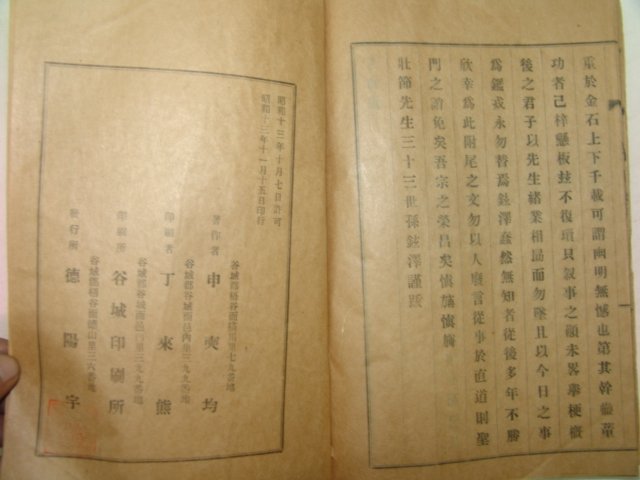 重於金石上下千載可謂幽明無憾也第其幹繼董
功者已梓懸板玆不復瑣具叙事之顚末畧擧梗槪
後之君子以先生緖業相勗而勿墜且以今日之事
爲鑑戒永勿替焉鉉澤蚕然無知者從後多年不勝
欣幸爲此附尾之文勿以人廢言從事於直道則聖
門之諸免矣吾宗之榮昌矣愼旃愼旃
壯節先生三十三世孫鉉澤謹跋
昭和十三年十月七日許可
昭和十三年十一月十五日印行
谷城郡梧谷面
著作者 申 奭 均
谷城郡谷城面邑內里三九九番地
印刷者 丁 來 熊
谷城郡谷城面邑內里三九九番地
印刷所 谷城印刷所
谷城郡梧谷面德山里三六番地
發行所 德 陽 宇